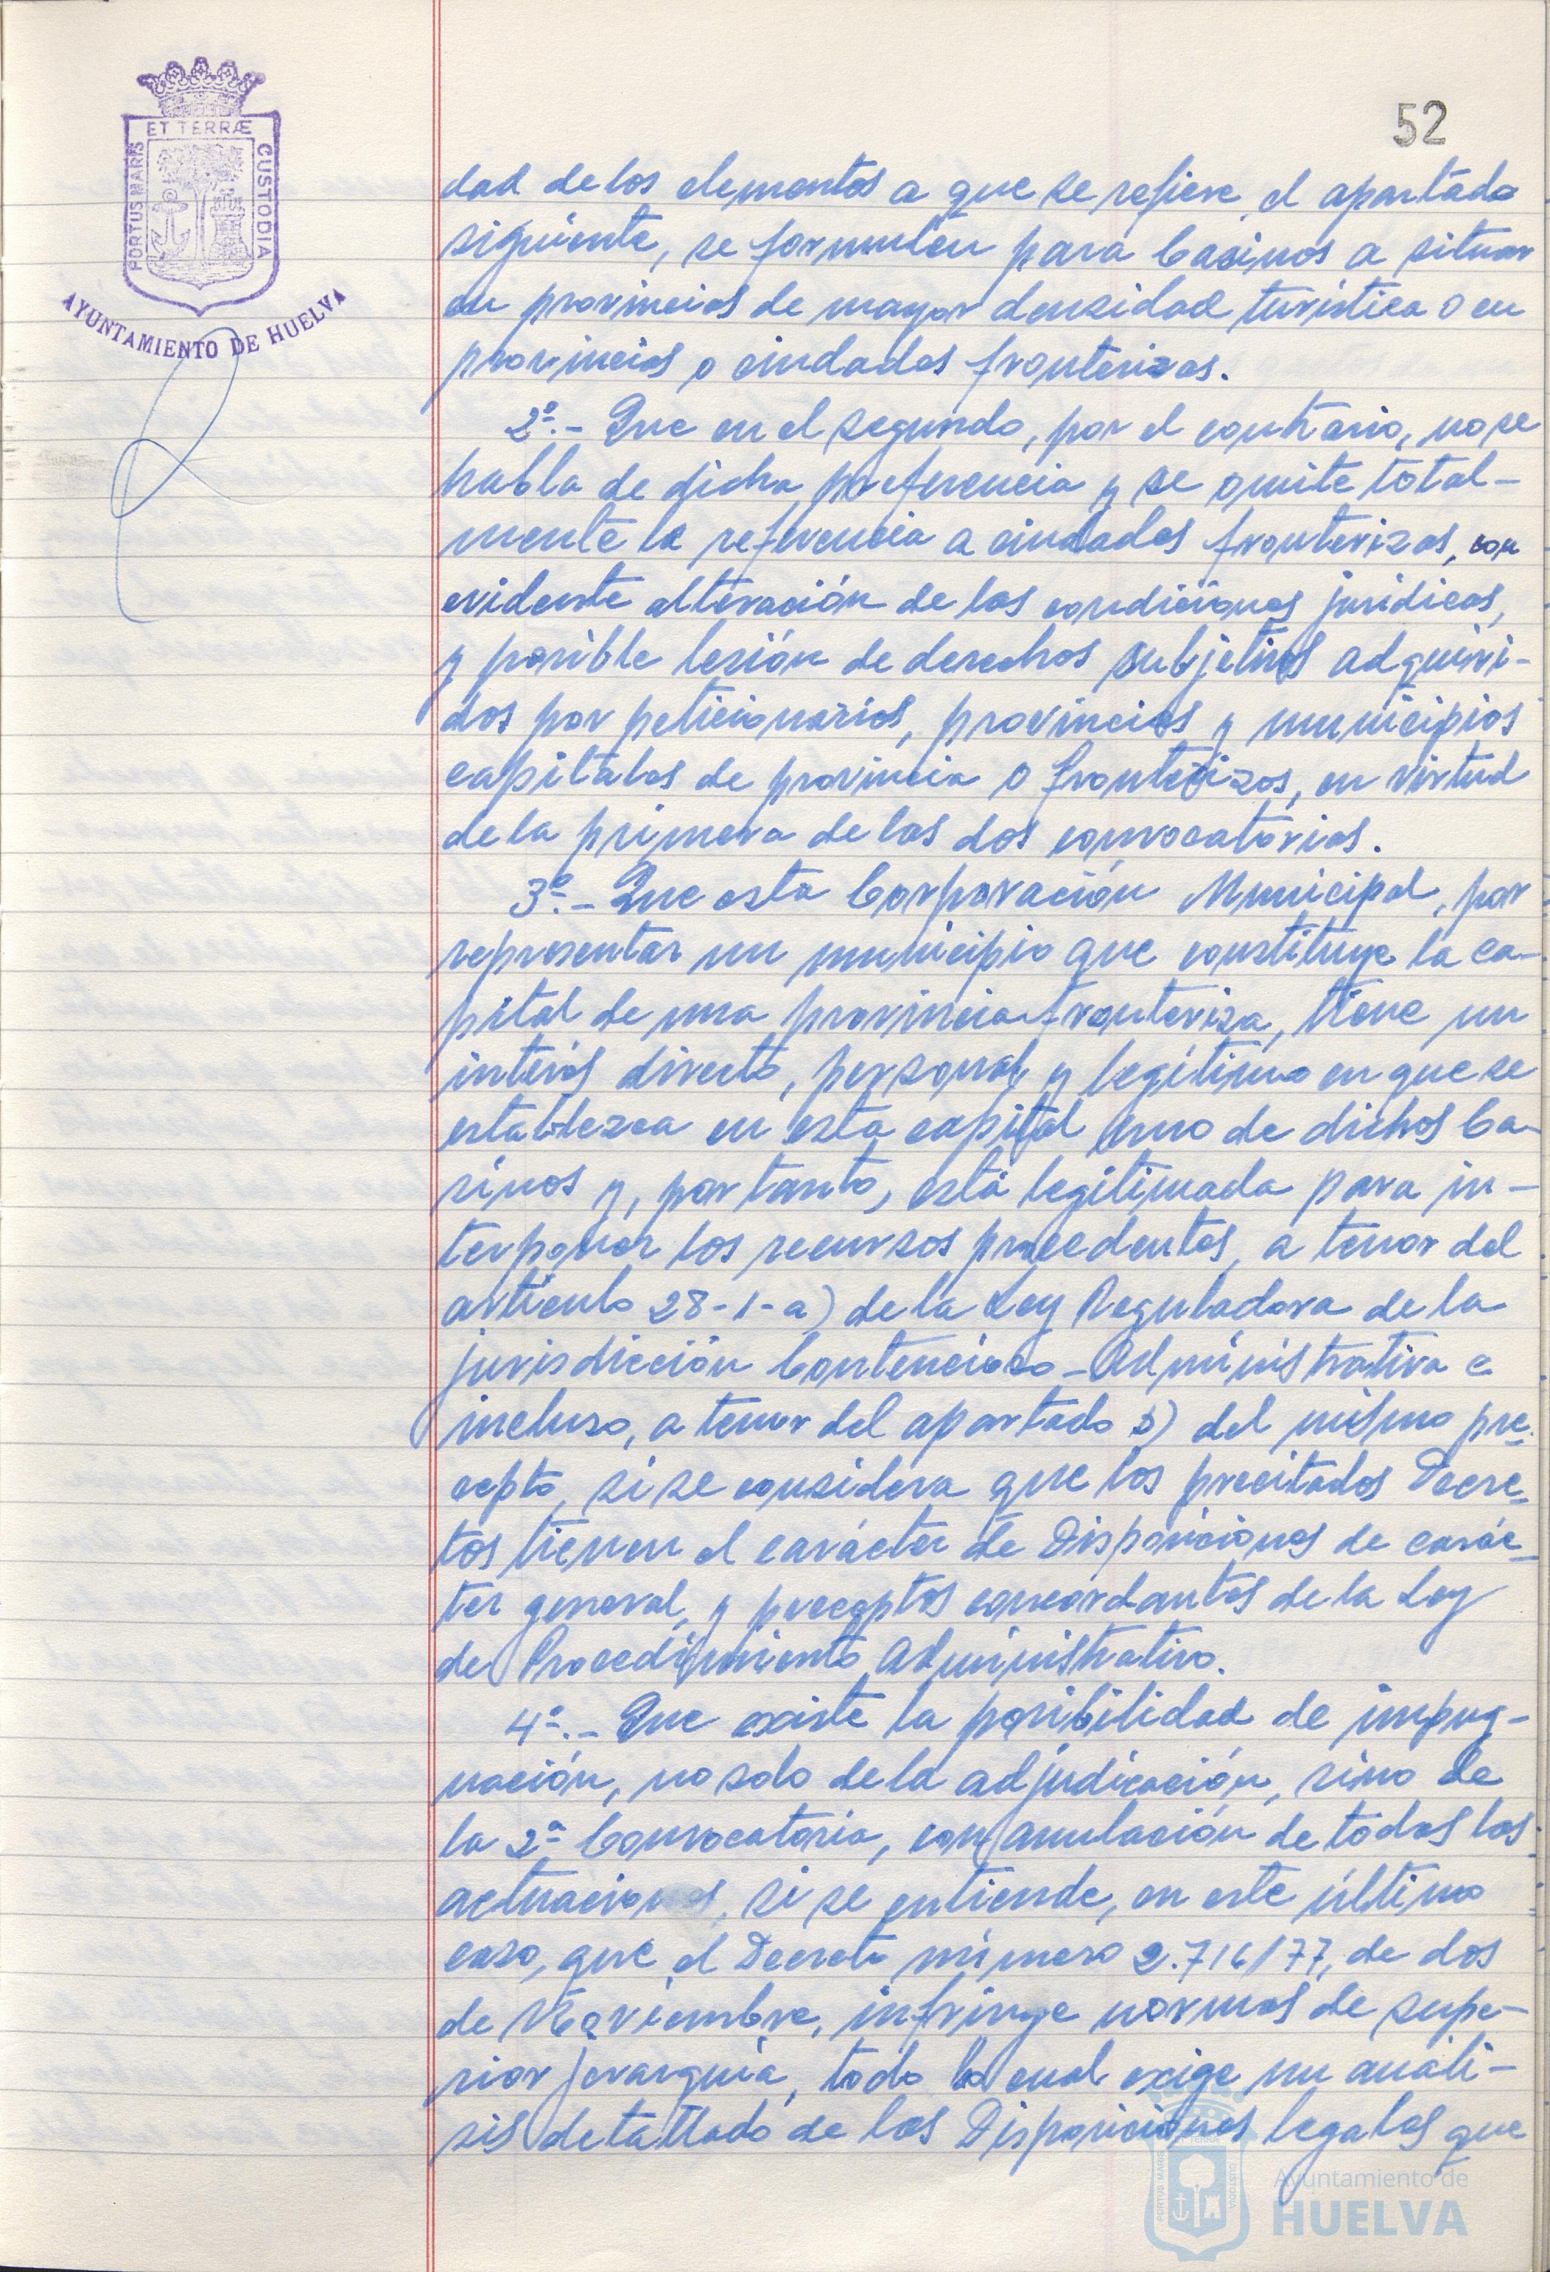 ET TERRÆ
PORTUS MARIS
CUSTODIA
AYUNTAMIENTO DE HUELVA
52
dad de los elementos a que se refiere el apartado
siguiente, se formulen para Casinos a situar
en provincias de mayor densidad turística o en
provincias o ciudades fronterizas.
2º.- Que en el segundo, por el contrario, no se
habla de dicha preferencia y se omite total-
mente la referencia a ciudades fronterizas, con
evidente alteración de las condiciones jurídicas,
y posible lesión de derechos subjetivos adquiri-
dos por peticionarios, provincias y municipios
capitales de provincia o fronterizos, en virtud
de la primera de las dos convocatorias.
3º.- Que esta Corporación Municipal, por
representar un municipio que constituye la ca-
pital de una provincia fronteriza, tiene un
interés directo, personal y legítimo en que se
establezca en esta capital uno de dichos Ca-
sinos y, por tanto, está legitimada para in-
terponer los recursos procedentes, a tenor del
artículo 28-1-a) de la Ley Reguladora de la
jurisdicción Contencioso-Administrativa e
incluso, a tenor del apartado b) del mismo pre-
cepto, si se considera que los precitados Decre-
tos tienen el carácter de Disposiciones de carác-
ter general, y preceptos concordantes de la Ley
de Procedimiento Administrativo.
4º.- Que existe la posibilidad de impug-
nación, no solo de la adjudicación, sino de
la 2ª Convocatoria, con anulación de todas las
actuaciones, si se entiende, en este último
caso, que el Decreto número 2.716/77, de dos
de Noviembre, infringe normas de supe-
rior jerarquía, todo lo cual exige un análi-
sis detallado de las Disposiciones legales que
Ayuntamiento de
HUELVA